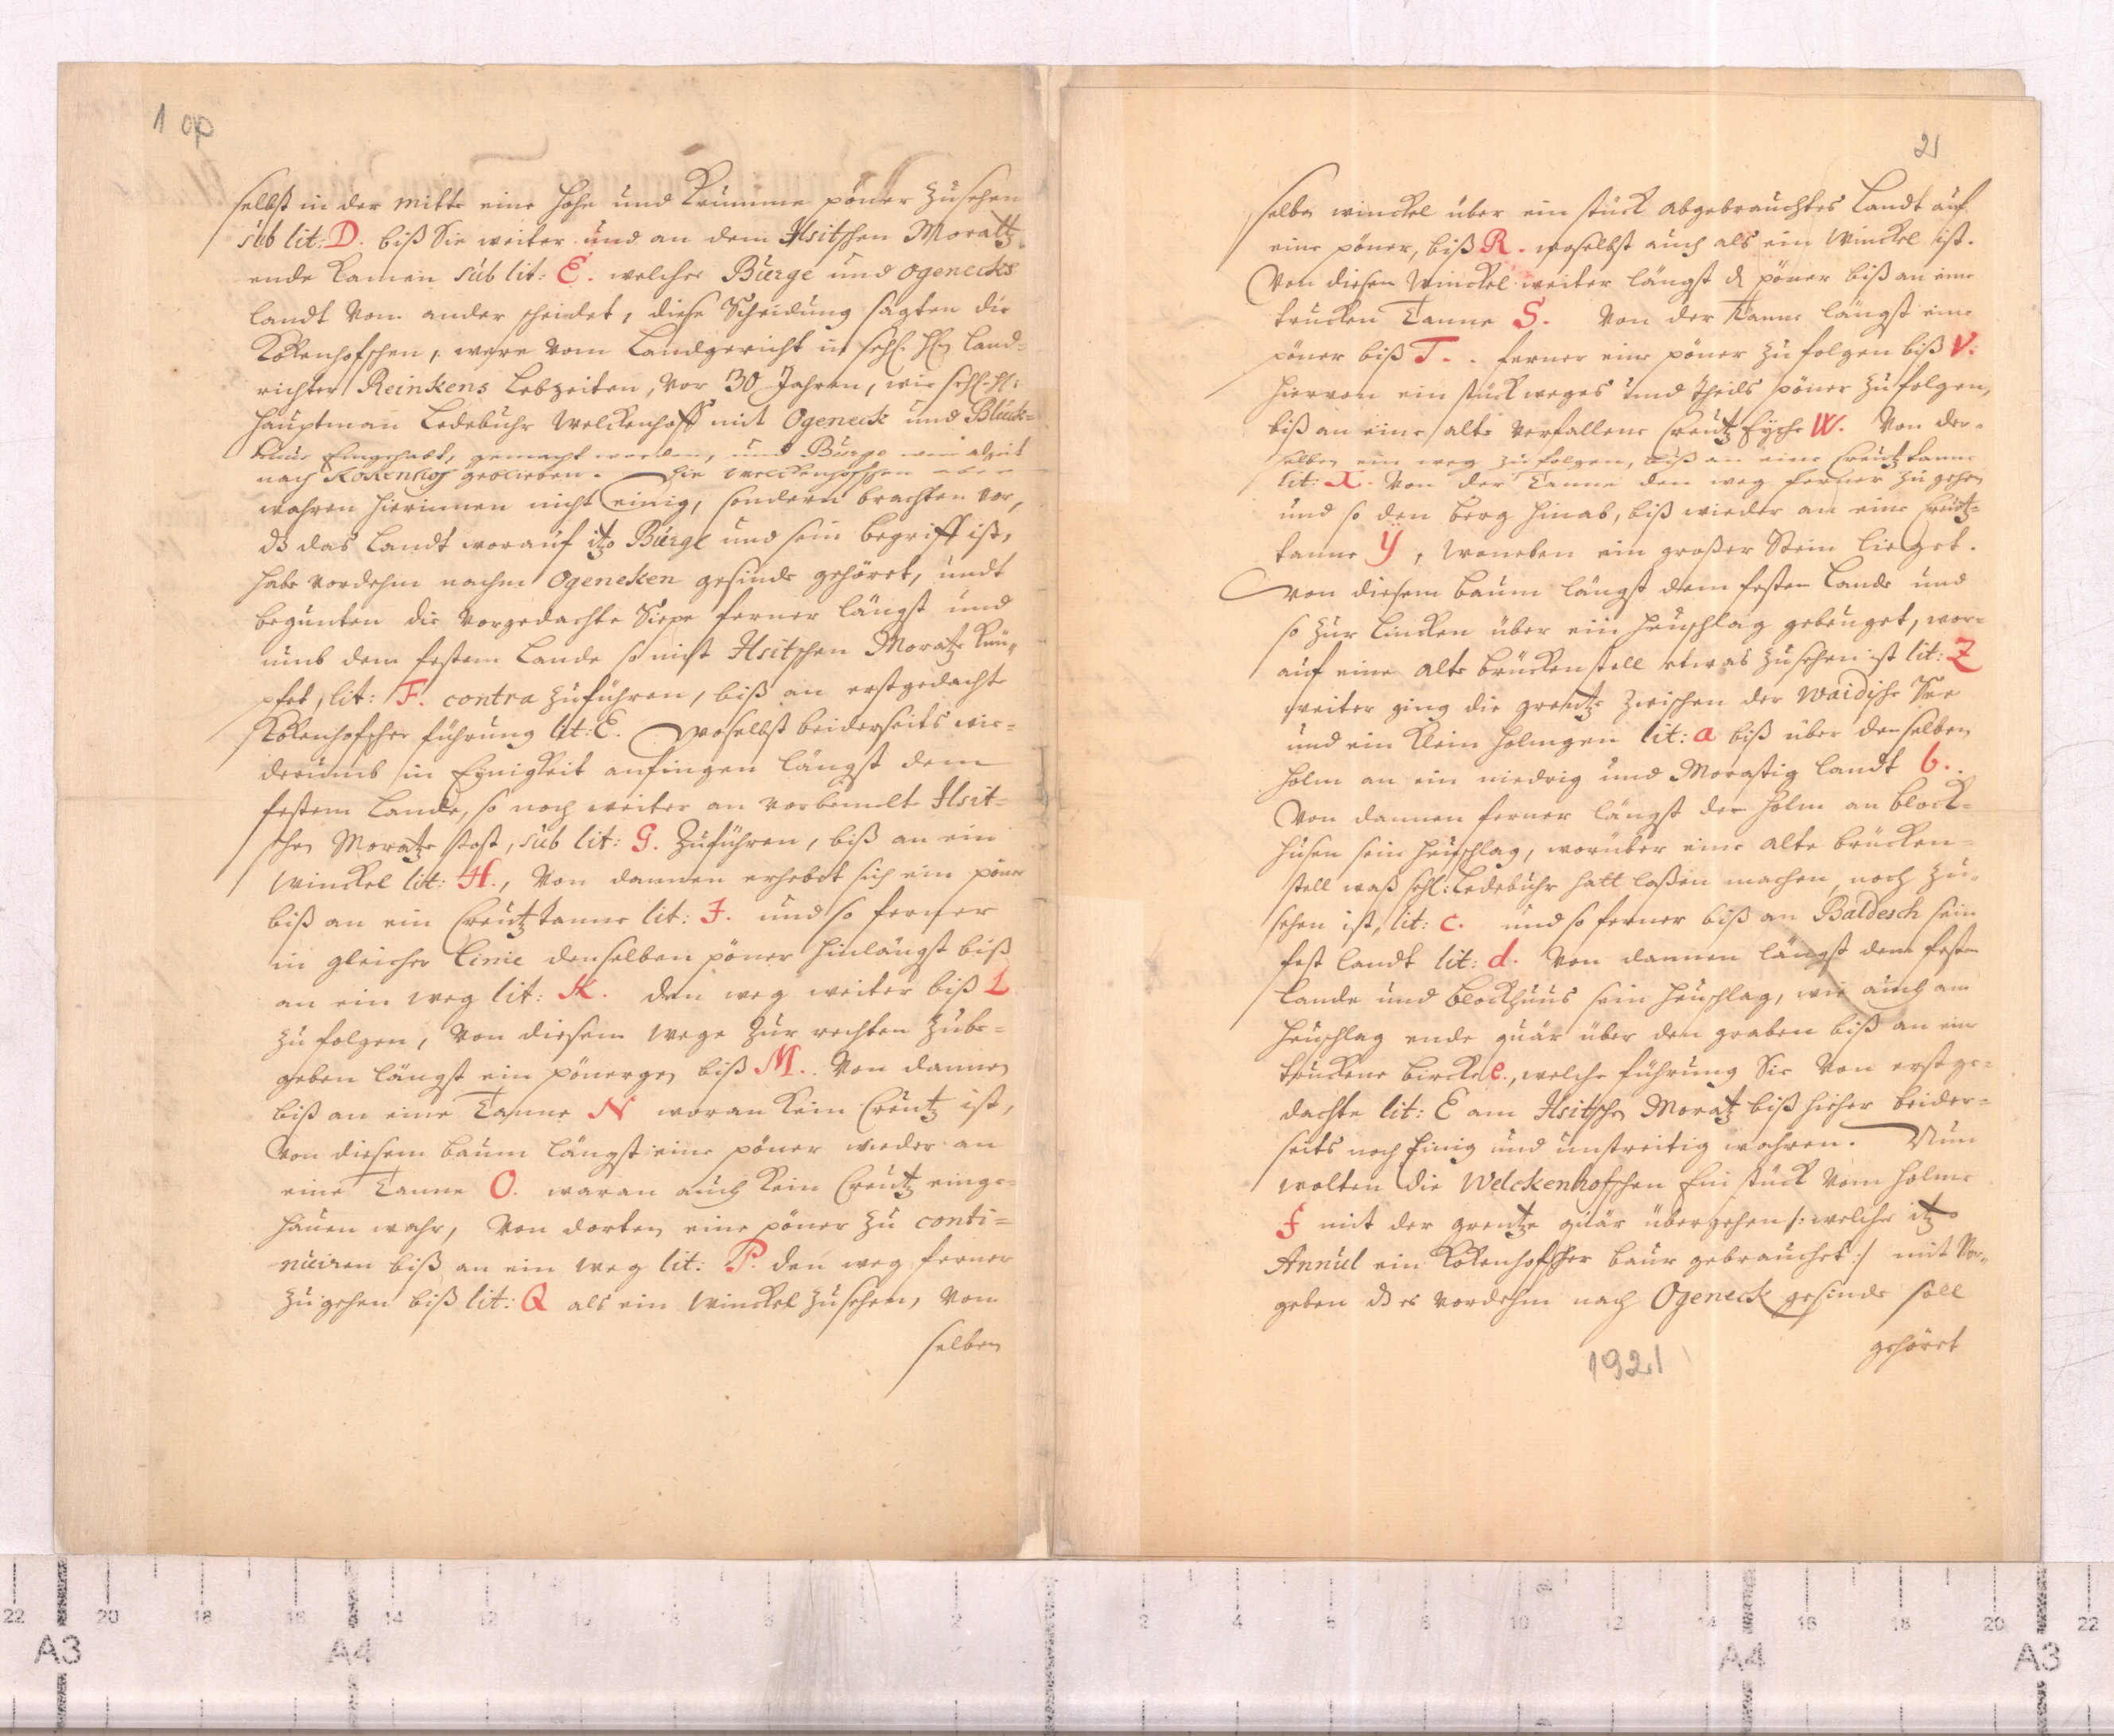 1 op
selbst in der mitte eine hohe und Krumme pöner zusehen
sub lit: D. biß Sie weiter und an dem Ilsitschen Moratz
ende kamen sub lit: E. welches Bürge und Ogenecks
landt von ander scheidet, diese Scheidung sagten die
Kokenhofschen, were vom Landgericht in sehl. Hn Land-
richter Reinkens Lebzeiten, vor 30 Jahren, wie sehl. H:
Hauptman Ledebuhr Welckenhoff mit Ogeneck und Block-
huus Eingehabt, gemacht worden, und Bürge wie alzeit
nach Kokenhof geblieben. Die Welckenhofschen aber
wahren hierinnen nicht einig, sondern brachten vor,
dz das landt worauf itzo Bürge und sein begriff ist,
habe vordehm nachm Ogeneken gesinde gehöret, undt
begunten die vorgedachte Siepe ferner längst und
umb dem festem Lande so ins Ilsitschen Moratz knü-
pfet, lit: F. contra zuführen, biß an erstgedachte
Kokenhofsche führung lit: E. woselbst beiderseits wie-
derumb in Eynigkeit anfingen längst dem
festem Lande, so noch weiter an vorbemelte Ilsit-
schen Moratz stost, sub lit: G. zuführen, biß an ein
Winckel lit: H., von dannen erhebet sich ein pöner
biß an ein Creutztanne lit: I. und so ferner
in gleicher Linie denselben pöner hinlängst biß
an ein weg lit: K. den weg weiter biß L
zu folgen, von diesem wege zur rechten zube-
geben längst ein pönergen biß M.. Von dannen
biß an eine Tanne N woran kein Creutz ist,
Von diesem baum längst eine pöner wieder an
eine Tanne O. waran auch kein Creutz einge-
hauen wahr, von dorten eine pöner zu conti-
nuiren biß an ein weg lit: P. den weg ferner
zugehen biß lit: Q als ein Winckel zusehen, von
selben
21
selben winckel über ein stück abgebrauchtes Landt auf
eine pöner, biß R. woselbst auch als ein Winckel ist.
Von diesem Winckel weiter längst d pöner biß an eine
trucken Tanne S. Von der Tanne längst eine
pöner biß T.. ferner eine pöner zu folgen biß V.
hiervon ein stück weges und theils pöner zu folgen,
biß an eine alte verfallene Creutz Eyche W. Von der-
selben ein weg zu folgen, biß an eine Creutztanne
lit: X. Von der Tanne den weg ferner zu gehen
und so den berg hinab, biß wieder an eine Creutz-
tanne Y, woneben ein großer Stein lieget.
Von diesem baum längst dem festen Lande und
so zur lincken über ein heuschlag gebeuget, wor-
auf eine alte brückenstell etwas zusehen ist lit: Z
weiter ging die grentze zwischen der Waidische See
und ein klein holmgen lit: a biß über denselben
holm an ein niedrig und Morastig landt b..
Von dannen ferner längst der holm an Block-
husen sein heuschlag, worüber eine alte brücken-
stell waß sehl: Ledebuhr hatt laßen machen, noch zu-
sehen ist, lit: c. und so ferner biß an Baldesch sein
fest landt lit: d. Von dannen längst dem festen
lande und Blockhuus sein heuschlag, wie auch am
heuschlag ende quär über den graben biß an eine
truckene bircke e., welche führung Sie von erstge-
dachte lit: E am Ilsitschen Moratz biß hieher beider-
seits noch Einig und unstreitig wahren. Nun
wolten die Welckenhofschen Ein stück vom holme
f mit der grentze quär übergehen /: welche itzo
Annul ein Kokenhofscher baur gebrauchet :/ mit Vor-
geben dz es vordehm nach Ogeneck gesinde soll
gehöret
1921